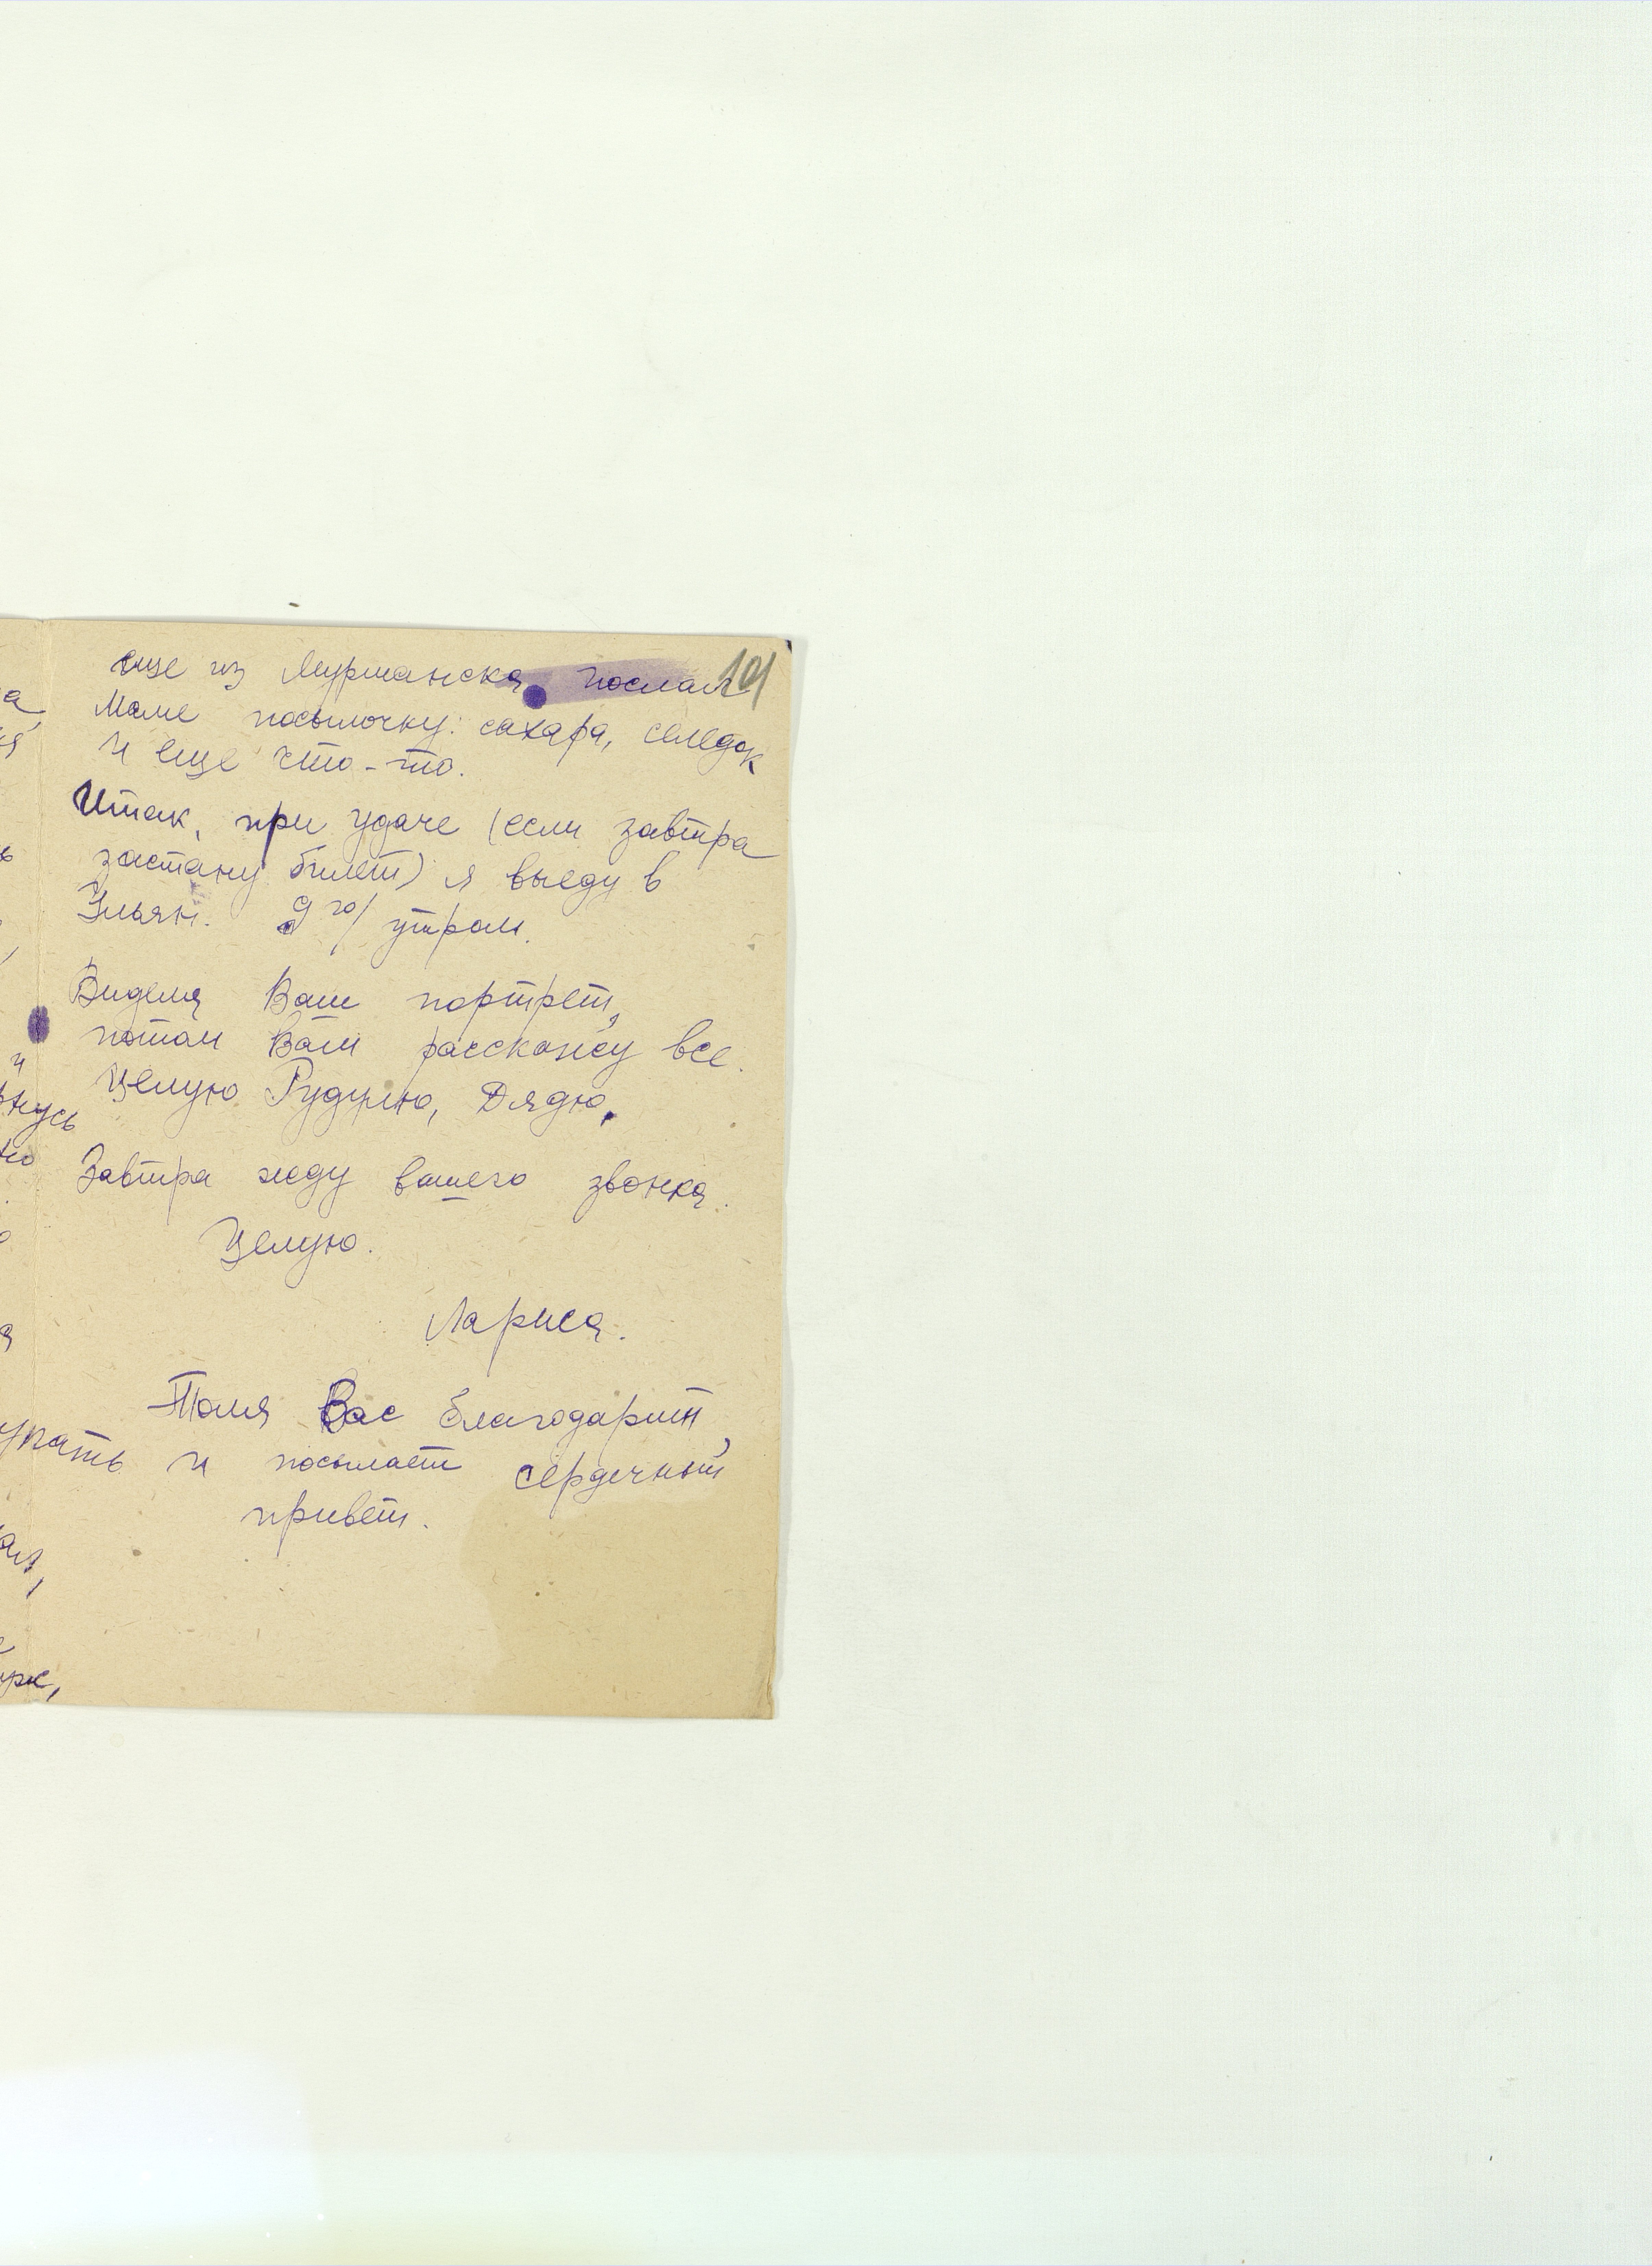 101
еще из Мурманска послал
маме посылочку: сахара, селедок
и еще что-то.
Итак, при удаче (если завтра
застану билет) я выеду в
Ульян. 9го/ утром.
Видела Ваш портрет,
потом Вам расскажу все.
Целую Рудулю, Дядю.
Завтра жду вашего звонка.
Целую.
Лариса.
Толя Вас благодарит,
и посылает сердечный
привет.